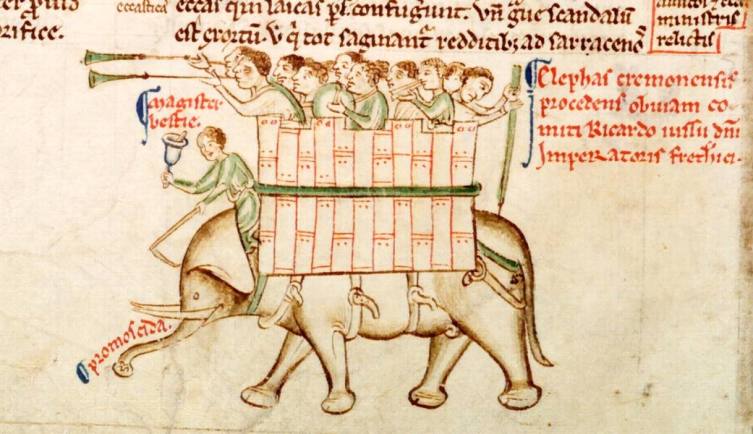 eccastica
orifice.
eccas qui laicas pl. confugiunt. Vn̄ gͣue scandalū
est exortū. Vͭ qͥ tot saginant᷑ redditibꝫ ad sarracenoꝝ
ministris
relictis
Magister
bestie.
Elephas cremonensis
procedens obuiam co-
miti Ricardo iussu dn̄i
Imperatoris fretherici.
promoscida.